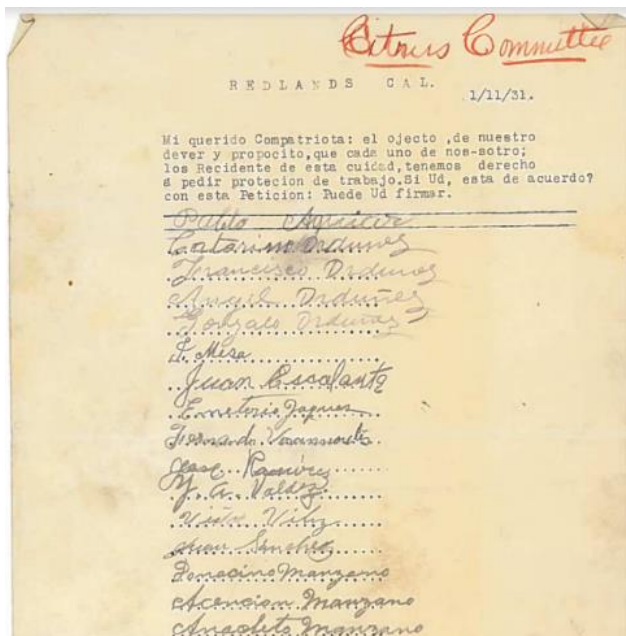 Citrus Committee
REDLANDS CAL.
1/11/31.
Mi querido Compatriota: el ojecto ,de nuestro
dever y proposito,que cada uno de nos-sotro;
los Recidente de esta cuidad,tenemos derecho
á pedir protecion de trabajo.Si Ud, esta de acuerdo?
con esta Peticion: Puede Ud firmar.
Pablo Aguilar
Catarino Orduñez
Francisco Orduñez
Angel Orduñez
Gonzalo Orduñez
F. Mesa
Juan Escalante
Emeterio Jaquez
Fernando
Jose Ramirez
Y. A. Valdez
Victor Viliz
Juan Sanchez
Donacino Manzano
Acencion Manzano
Anacleto Manzano